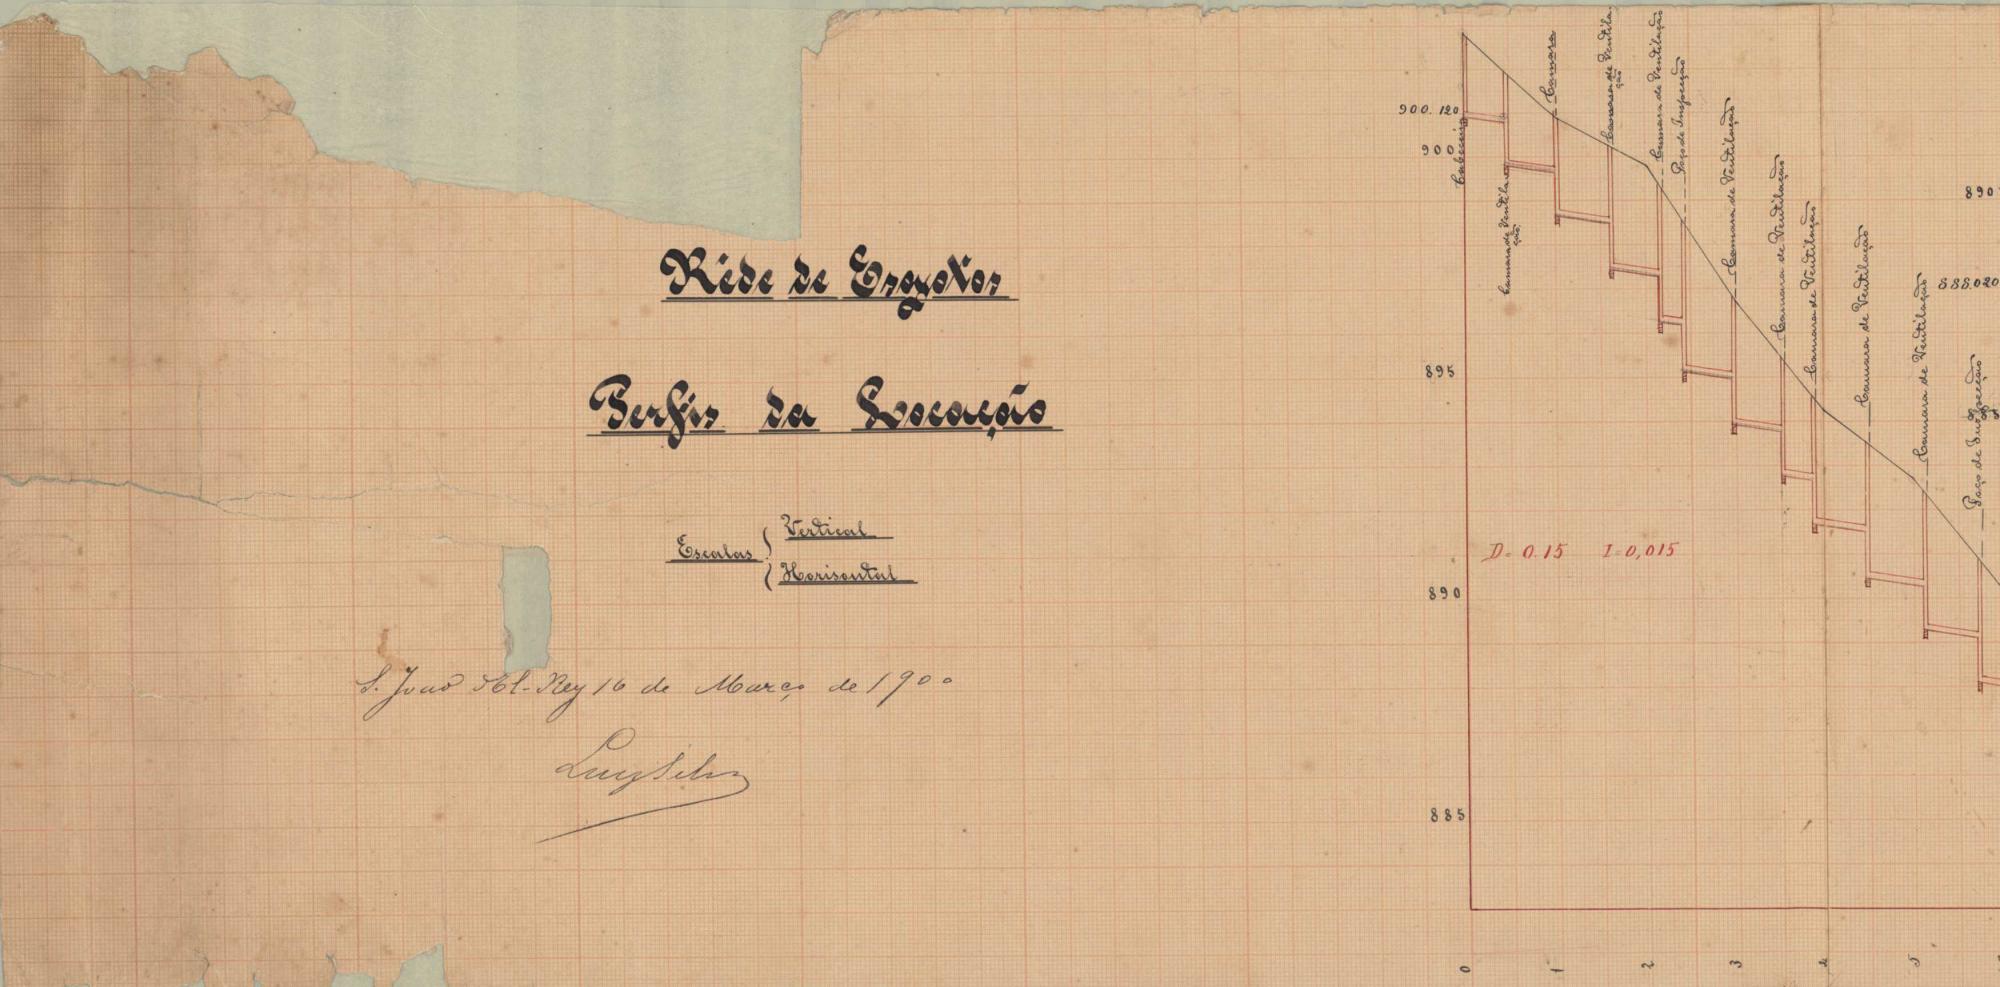 Rêde de Esgotos
Perfis da Locação
Escalas
Vertical
Horisontal
S. João del-Rey 16 de Março de 1900
Luiz Silva
900.120
900
895
890
885
Cabeceira
Camara de Ventilação
Camara
Camara de Ventilação
Camara de Ventilação
Poço de Inspecção
Camara de Ventilação
Camara de Ventilação
Camara de Ventilação
Camara de Ventilação
Camara de Ventilação
Poço de Inspecção
890
888.020
D= 0.15 I=0,015
0 1 2 3 4 5